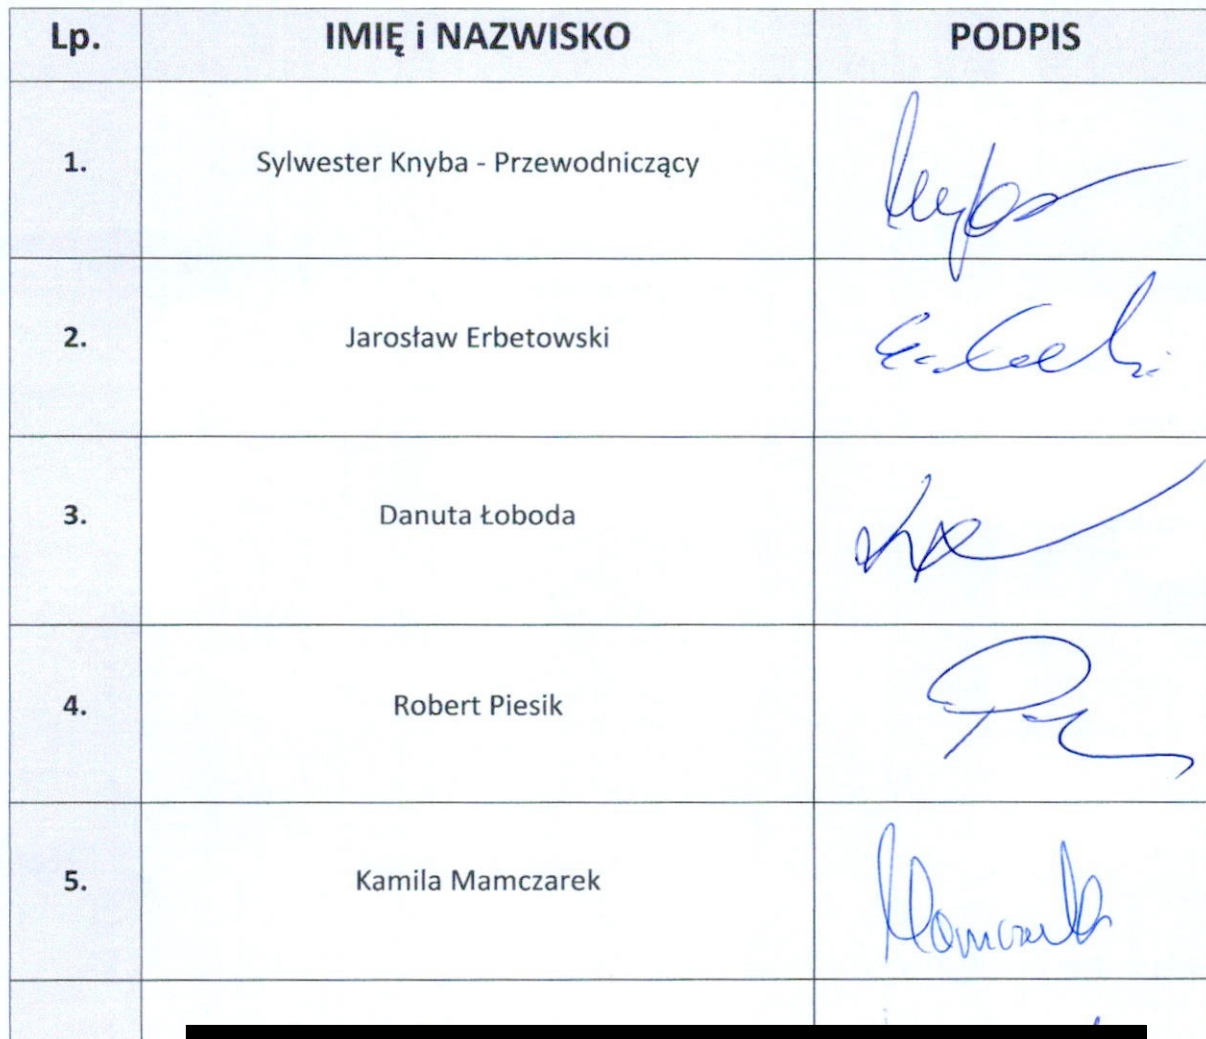 Lp. IMIĘ i NAZWISKO PODPIS
1. Sylwester Knyba - Przewodniczący
2. Jarosław Erbetowski
3. Danuta Łoboda
4. Robert Piesik
5. Kamila Mamczarek